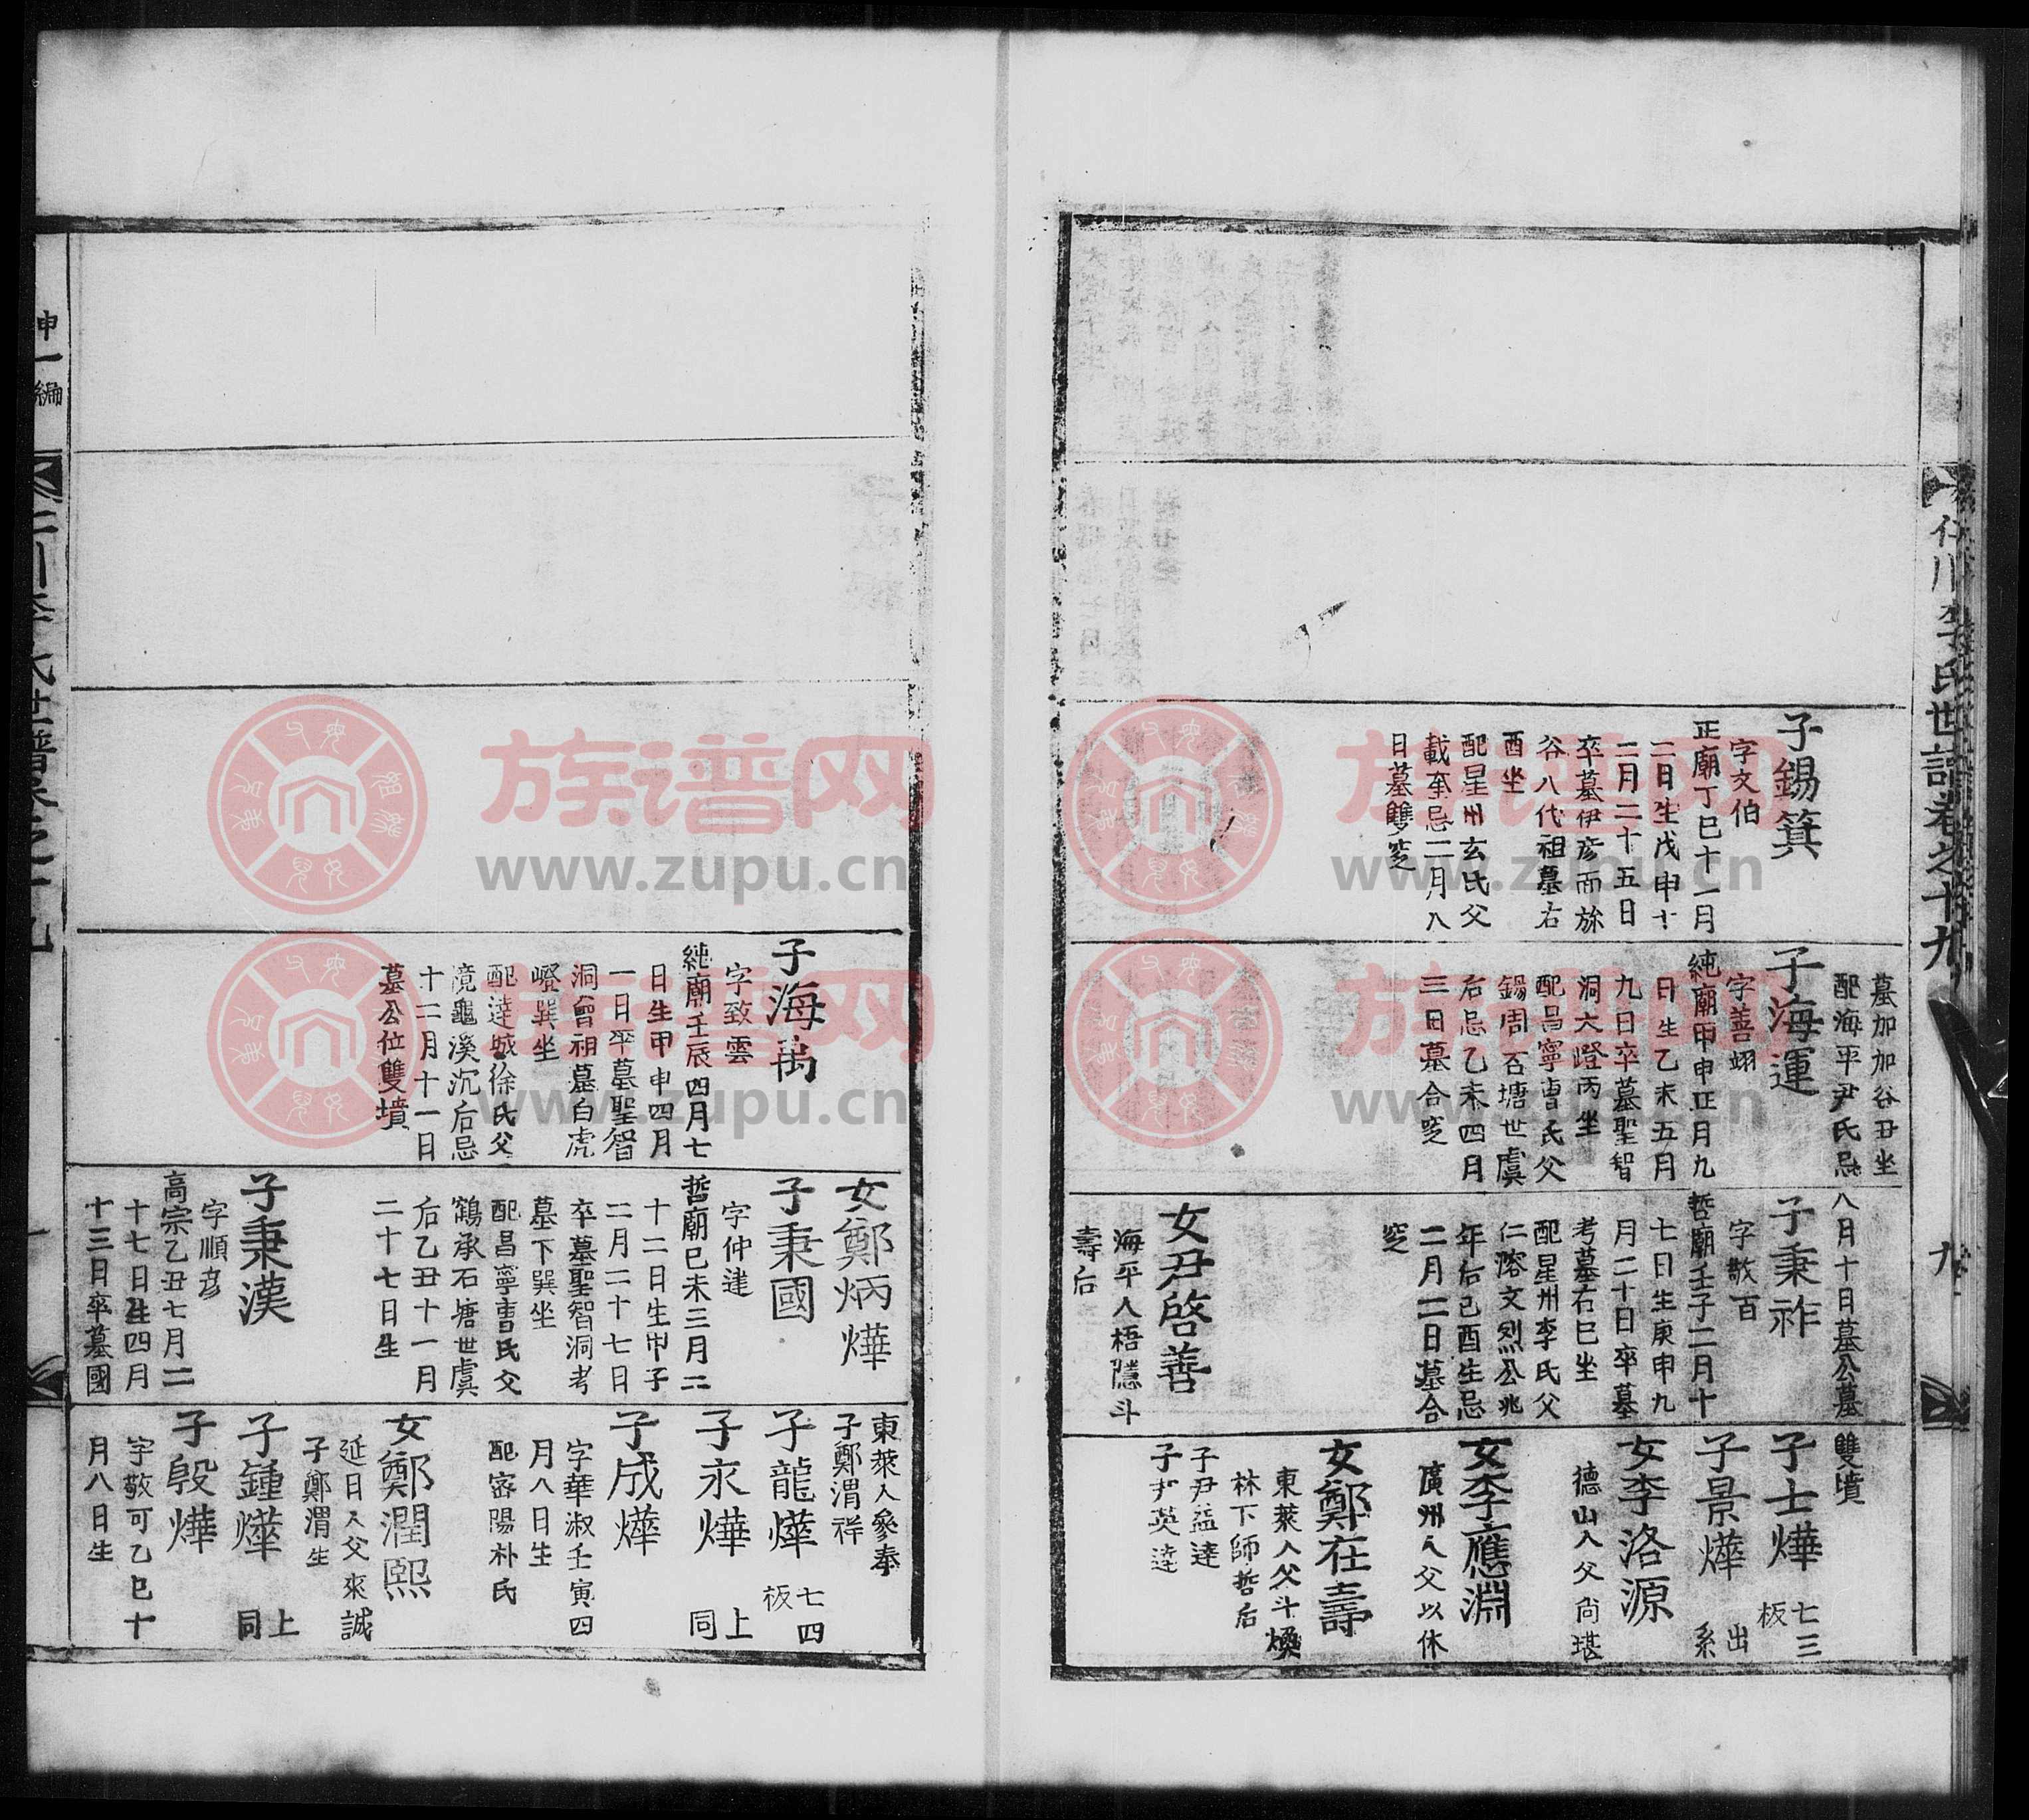 仁川李氏世譜卷之十九
九
子錫箕
字文伯
正廟丁巳十一月
二日生戊申十
二月二十五日
卒墓伊彦而旀
谷八代祖墓右
酉坐
配星州玄氏父
載奎忌二月八
日墓雙窆
墓加加谷丑坐
配海平尹氏忌
子海運
字善翊
純廟甲申正月九
日生乙未五月
九日卒墓聖智
洞大嶝丙坐
配昌寧曺氏父
錫周 石塘世虞
后忌乙未四月
三日墓合窆
八月十日墓公墓
子秉祚
字敬百
哲廟壬子二月十
七日生庚申九
月二十日卒墓
考墓右巳坐
配星州李氏父
仁溶文烈公兆
年后己酉生忌
二月二日墓合
窆
女尹啓善
海平人梧隱斗
壽后
雙墳
子士燁 七三板
子景燁 出系
女李洛源
德山人父尙堪
女李應淵
廣州人父以休
女鄭在壽
東萊人父斗煥
林下師哲后
子尹益逹
子尹英逹
子海禹
字致雲
純廟壬辰四月七
日生甲申四月
一日卒墓聖智
洞曾祖墓白虎
嶝巽坐
配逹城徐氏父
滰龜溪沉后忌
十二月十一日
墓公位雙墳
女鄭炳燁
子秉國
字仲達
哲廟己未三月二
十二日生甲子
二月二十七日
卒墓聖智洞考
墓下巽坐
配昌寧曺氏父
鶴承石塘世虞
后乙丑十一月
二十七日生
子秉漢
字順彦
高宗乙丑七月二
十七日生四月
十三日卒墓國
東萊人參奉
子鄭渭祥
子龍燁 七四板
子永燁 上同
子成燁
字華淑壬寅四
月八日生
配密陽朴氏
女鄭潤熙
延日人父來誠
子鄭渭生
子鍾燁 上同
子殷燁
字敬可乙巳十
月八日生
坤一編
仁川李氏世譜卷之十九
族谱网
www.zupu.cn
族谱网
www.zupu.cn
族谱网
www.zupu.cn
族谱网
www.zupu.cn